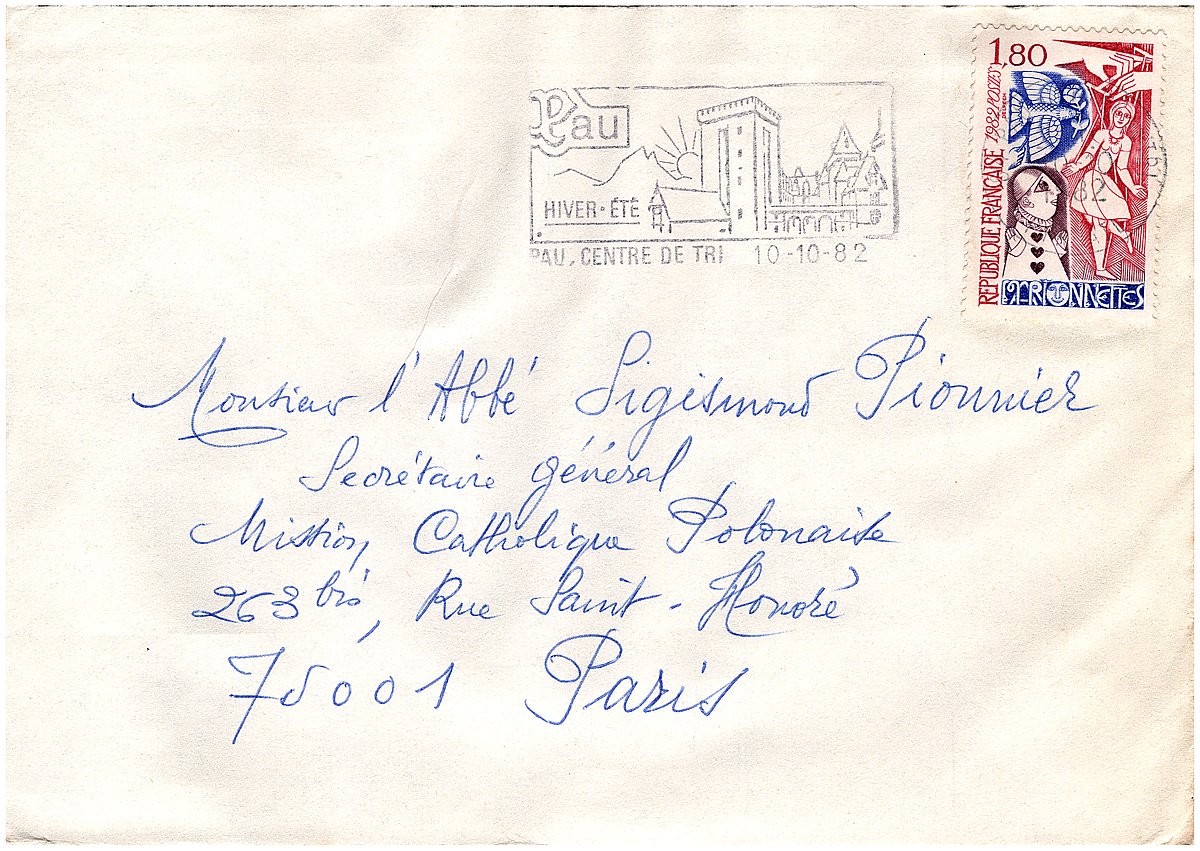 Pau
HIVER·ÉTÉ
PAU, CENTRE DE TRI 10-10-82
1,80
RÉPUBLIQUE FRANÇAISE 1982 POSTES
MARIONNETTES
Monsieur l'Abbé Sigismond Pionnier
Secrétaire général
Mission Catholique Polonaise
263 bis, Rue Saint-Honoré
75001 Paris